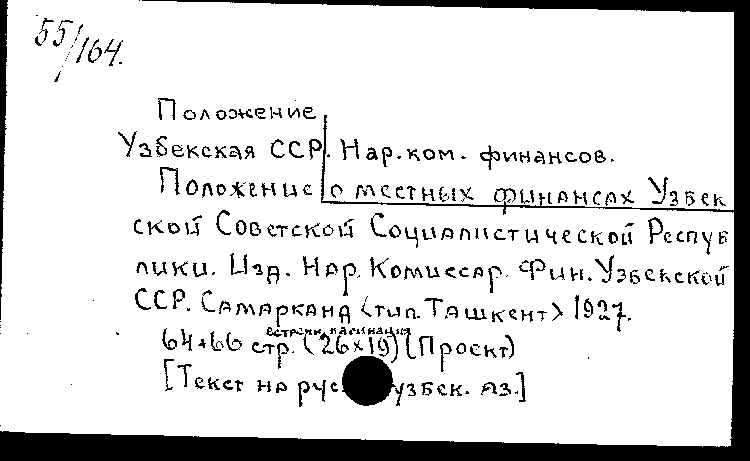 55/164.
Положение
Узбекская ССР. Нар.ком. финансов.
Положение о местных финансах Узбек
ской Советской Социалистической Респуб
лики. Изд. Нар. Комиссар. Фин. Узбекской
ССР. Самарканд <тип. Ташкент> 1927.
встречн. пагинация
64+66 стр. (26×19) (Проект)
[Текст на рус узбек. яз.]